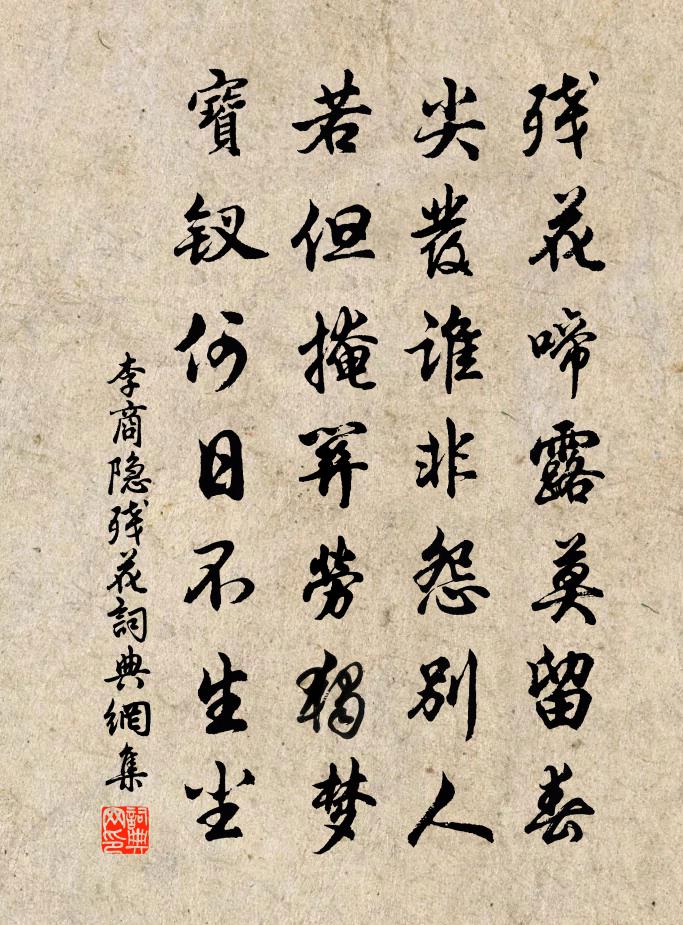 残花啼露莫留春
尖發谁非怨别人
若但掩關勞獨梦
寶钗何日不生尘
李商隐残花詞典網集
詞典网印